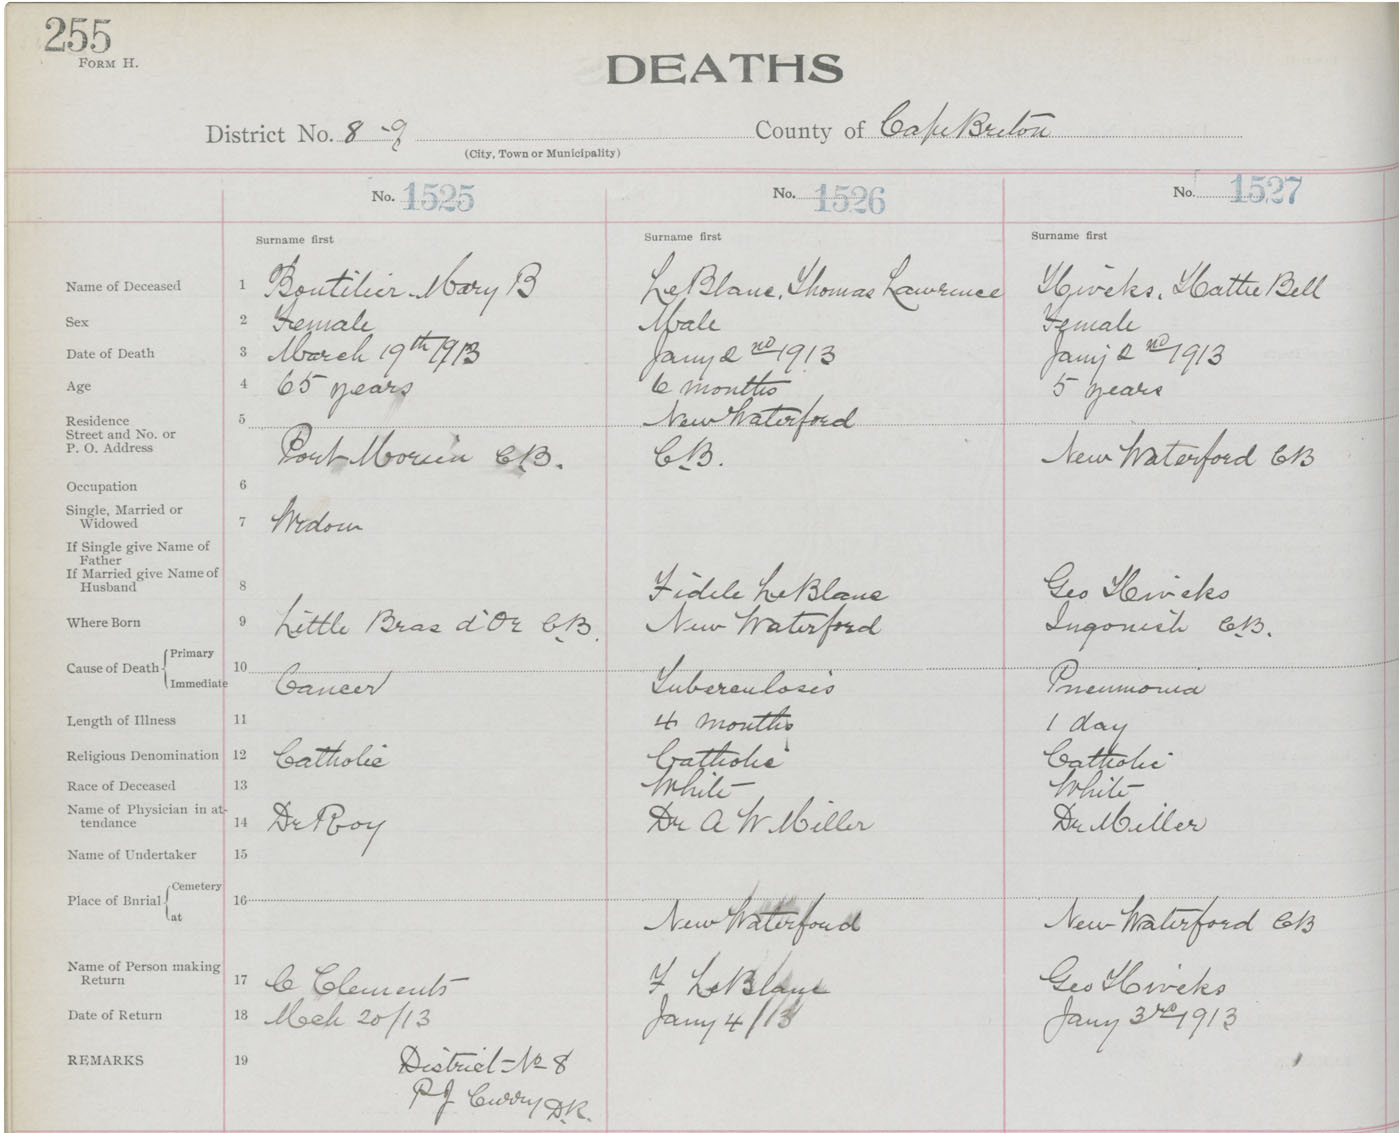 255
FORM H.
DEATHS
District No. 8-9 County of Cape Breton
(City, Town or Municipality)
No. 1525 No. 1526 No. 1527
Surname first Surname first Surname first
Name of Deceased 1 Boutilier Mary B LeBlanc, Thomas Lawrence Hattie Bell
Sex 2 Female Male Female
Date of Death 3 March 19th 1913 Jany 2nd 1913 Jany 2nd 1913
Age 4 65 years 6 months 5 years
Residence 5 New Waterford
Street and No. or
P. O. Address Port Morien C.B. C.B. New Waterford CB
Occupation 6
Single, Married or
Widowed 7 Widow
If Single give Name of
Father
If Married give Name of
Husband 8 Fidele LeBlanc Geo
Where Born 9 Little Bras d'Or C.B. New Waterford Ingonish C.B.
Cause of Death { Primary 10
Immediate Cancer Tuberculosis Pneumonia
Length of Illness 11 4 months 1 day
Religious Denomination 12 Catholic Catholic Catholic
Race of Deceased 13 White White
Name of Physician in at-
tendance 14 Dr Roy Dr A W Miller Dr Miller
Name of Undertaker 15
Place of Burial { Cemetery 16
at New Waterford New Waterford CB
Name of Person making
Return 17 C Clements F LeBlanc Geo
Date of Return 18 Mch 20/13 Jany 4/13 Jany 3rd 1913
REMARKS 19 District No 8
P J Curry D.R.